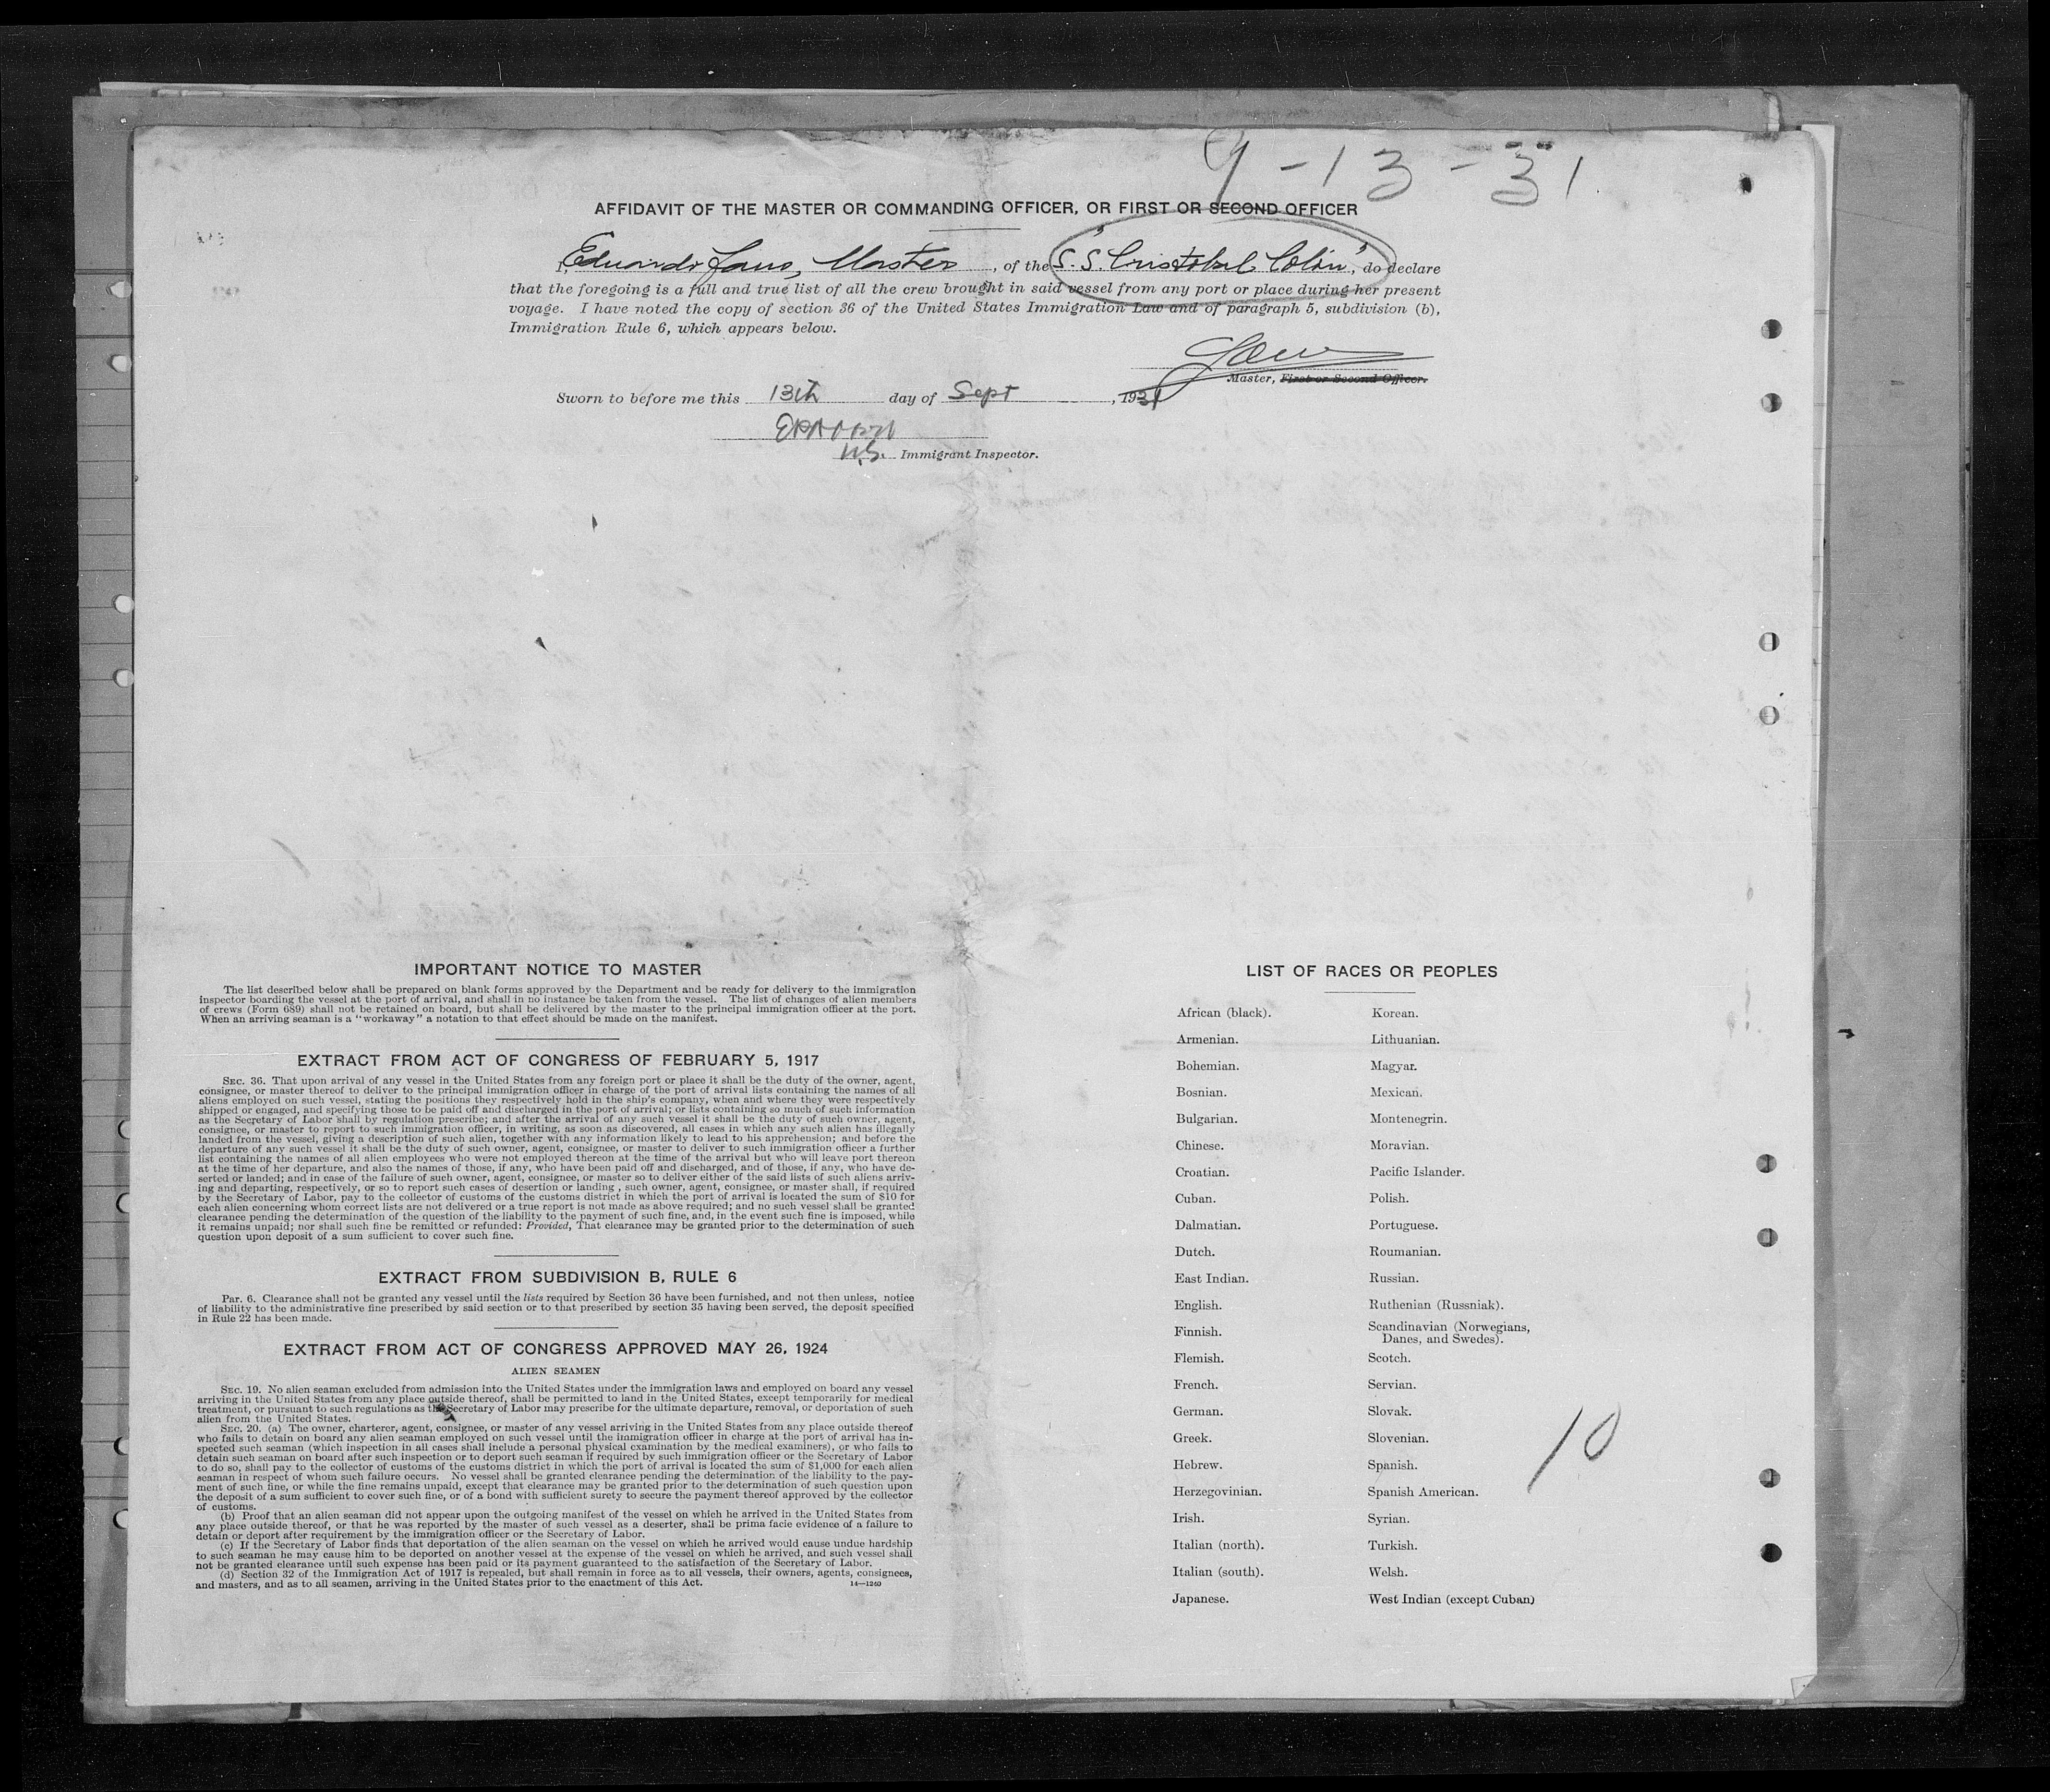 9-13-31
AFFIDAVIT OF THE MASTER OR COMMANDING OFFICER, OR FIRST OR SECOND OFFICER
I, Eduardo Master, of the "S.S. Cristobal Colon", do declare
that the foregoing is a full and true list of all the crew brought in said vessel from any port or place during her present
voyage. I have noted the copy of section 36 of the United States Immigration Law and of paragraph 5, subdivision (b),
Immigration Rule 6, which appears below.
Master, First or Second Officer.
Sworn to before me this 13th day of Sept, 1931
U.S. Immigrant Inspector.
IMPORTANT NOTICE TO MASTER
The list described below shall be prepared on blank forms approved by the Department and be ready for delivery to the immigration
inspector boarding the vessel at the port of arrival, and shall in no instance be taken from the vessel. The list of changes of alien members
of crews (Form 689) shall not be retained on board, but shall be delivered by the master to the principal immigration officer at the port.
When an arriving seaman is a "workaway" a notation to that effect should be made on the manifest.
EXTRACT FROM ACT OF CONGRESS OF FEBRUARY 5, 1917
SEC. 36. That upon arrival of any vessel in the United States from any foreign port or place it shall be the duty of the owner, agent,
consignee, or master thereof to deliver to the principal immigration officer in charge of the port of arrival lists containing the names of all
aliens employed on such vessel, stating the positions they respectively hold in the ship's company, when and where they were respectively
shipped or engaged, and specifying those to be paid off and discharged in the port of arrival; or lists containing so much of such information
as the Secretary of Labor shall by regulation prescribe; and after the arrival of any such vessel it shall be the duty of such owner, agent,
consignee, or master to report to such immigration officer, in writing, as soon as discovered, all cases in which any such alien has illegally
landed from the vessel, giving a description of such alien, together with any information likely to lead to his apprehension; and before the
departure of any such vessel it shall be the duty of such owner, agent, consignee, or master to deliver to such immigration officer a further
list containing the names of all alien employees who were not employed thereon at the time of the arrival but who will leave port thereon
at the time of her departure, and also the names of those, if any, who have been paid off and discharged, and of those, if any, who have de-
serted or landed; and in case of the failure of such owner, agent, consignee, or master so to deliver either of the said lists of such aliens arriv-
ing and departing, respectively, or so to report such cases of desertion or landing, such owner, agent, consignee, or master, shall, if required
by the Secretary of Labor, pay to the collector of customs of the customs district in which the port of arrival is located the sum of $10 for
each alien concerning whom correct lists are not delivered or a true report is not made as above required; and no such vessel shall be granted
clearance pending the determination of the question of the liability to the payment of such fine, and, in the event such fine is imposed, while
it remains unpaid; nor shall such fine be remitted or refunded: Provided, That clearance may be granted prior to the determination of such
question upon deposit of a sum sufficient to cover such fine.
EXTRACT FROM SUBDIVISION B, RULE 6
Par. 6. Clearance shall not be granted any vessel until the lists required by Section 36 have been furnished, and not then unless, notice
of liability to the administrative fine prescribed by said section or to that prescribed by section 35 having been served, the deposit specified
in Rule 22 has been made.
EXTRACT FROM ACT OF CONGRESS APPROVED MAY 26, 1924
ALIEN SEAMEN
SEC. 19. No alien seaman excluded from admission into the United States under the immigration laws and employed on board any vessel
arriving in the United States from any place outside thereof, shall be permitted to land in the United States, except temporarily for medical
treatment, or pursuant to such regulations as the Secretary of Labor may prescribe for the ultimate departure, removal, or deportation of such
alien from the United States.
SEC. 20. (a) The owner, charterer, agent, consignee, or master of any vessel arriving in the United States from any place outside thereof
who fails to detain on board any alien seaman employed on such vessel until the immigration officer in charge at the port of arrival has in-
spected such seaman (which inspection in all cases shall include a personal physical examination by the medical examiners), or who fails to
detain such seaman on board after such inspection or to deport such seaman if required by such immigration officer or the Secretary of Labor
to do so, shall pay to the collector of customs of the customs district in which the port of arrival is located the sum of $1,000 for each alien
seaman in respect of whom such failure occurs. No vessel shall be granted clearance pending the determination of the liability to the pay-
ment of such fine, or while the fine remains unpaid, except that clearance may be granted prior to the determination of such question upon
the deposit of a sum sufficient to cover such fine, or of a bond with sufficient surety to secure the payment thereof approved by the collector
of customs.
(b) Proof that an alien seaman did not appear upon the outgoing manifest of the vessel on which he arrived in the United States from
any place outside thereof, or that he was reported by the master of such vessel as a deserter, shall be prima facie evidence of a failure to
detain or deport after requirement by the immigration officer or the Secretary of Labor.
(c) If the Secretary of Labor finds that deportation of the alien seaman on the vessel on which he arrived would cause undue hardship
to such seaman he may cause him to be deported on another vessel at the expense of the vessel on which he arrived, and such vessel shall
not be granted clearance until such expense has been paid or its payment guaranteed to the satisfaction of the Secretary of Labor.
(d) Section 32 of the Immigration Act of 1917 is repealed, but shall remain in force as to all vessels, their owners, agents, consignees,
and masters, and as to all seamen, arriving in the United States prior to the enactment of this Act.
14—1240
LIST OF RACES OR PEOPLES
African (black).
Armenian.
Bohemian.
Bosnian.
Bulgarian.
Chinese.
Croatian.
Cuban.
Dalmatian.
Dutch.
East Indian.
English.
Finnish.
Flemish.
French.
German.
Greek.
Hebrew.
Herzegovinian.
Irish.
Italian (north).
Italian (south).
Japanese.
Korean.
Lithuanian.
Magyar.
Mexican.
Montenegrin.
Moravian.
Pacific Islander.
Polish.
Portuguese.
Roumanian.
Russian.
Ruthenian (Russniak).
Scandinavian (Norwegians,
Danes, and Swedes).
Scotch.
Servian.
Slovak.
Slovenian.
Spanish.
Spanish American.
Syrian.
Turkish.
Welsh.
West Indian (except Cuban)
10